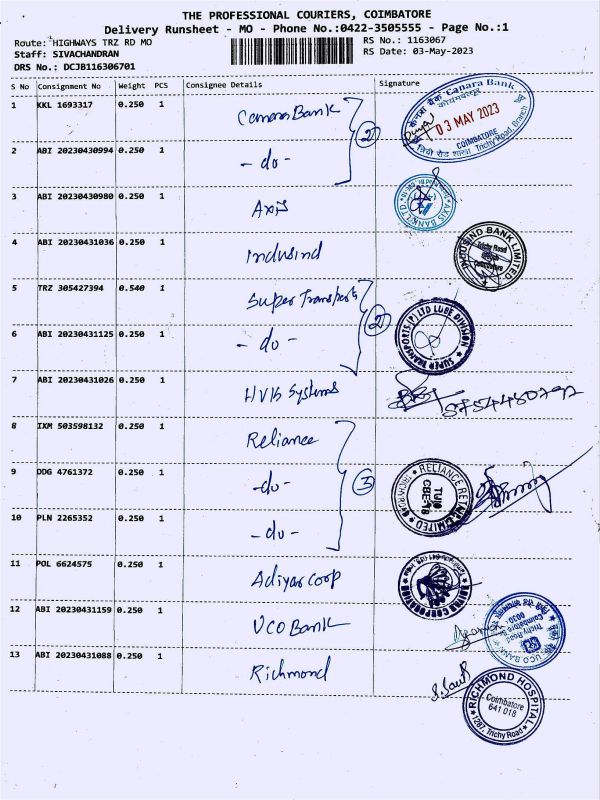 THE PROFESSIONAL COURIERS, COIMBATORE
Delivery Runsheet - MO - Phone No.:0422-3505555 - Page No.:1
Route: HIGHWAYS TRZ RD MO RS No.: 1163067
Staff: SIVACHANDRAN RS Date: 03-May-2023
DRS No.: DCJB116306701
S No Consignment No Weight PCS Consignee Details Signature
1 KKL 1693317 0.250 1 Canara Bank
2 ABI 20230430994 0.250 1 - do -
2
Canara Bank
03 MAY 2023
COIMBATORE
Trichy Road, Branch
3 ABI 20230430980 0.250 1 Axis
AXIS BANK LTD
4 ABI 20230431036 0.250 1 Indusind
INDUSIND BANK LIMITED
Trichy Road
Coimbatore
5 TRZ 305427394 0.540 1 Super Transports
6 ABI 20230431125 0.250 1 - do -
2
SUPER TRANSPORTS (P) LTD LUBE DIVISION
7 ABI 20230431026 0.250 1 HVK Systems
8 IXM 503598132 0.250 1 Reliance
9 DDG 4761372 0.250 1 -do-
10 PLN 2265352 0.250 1 -do-
3
RELIANCE RETAIL LIMITED
TRICHY ROAD
11 POL 6624575 0.250 1 Adiyar Coop
12 ABI 20230431159 0.250 1 UCO Bank
UCO BANK
Trichy Road
Coimbatore
13 ABI 20230431088 0.250 1 Richmond
RICHMOND HOSPITAL
Coimbatore
641 018
1287, Trichy Road